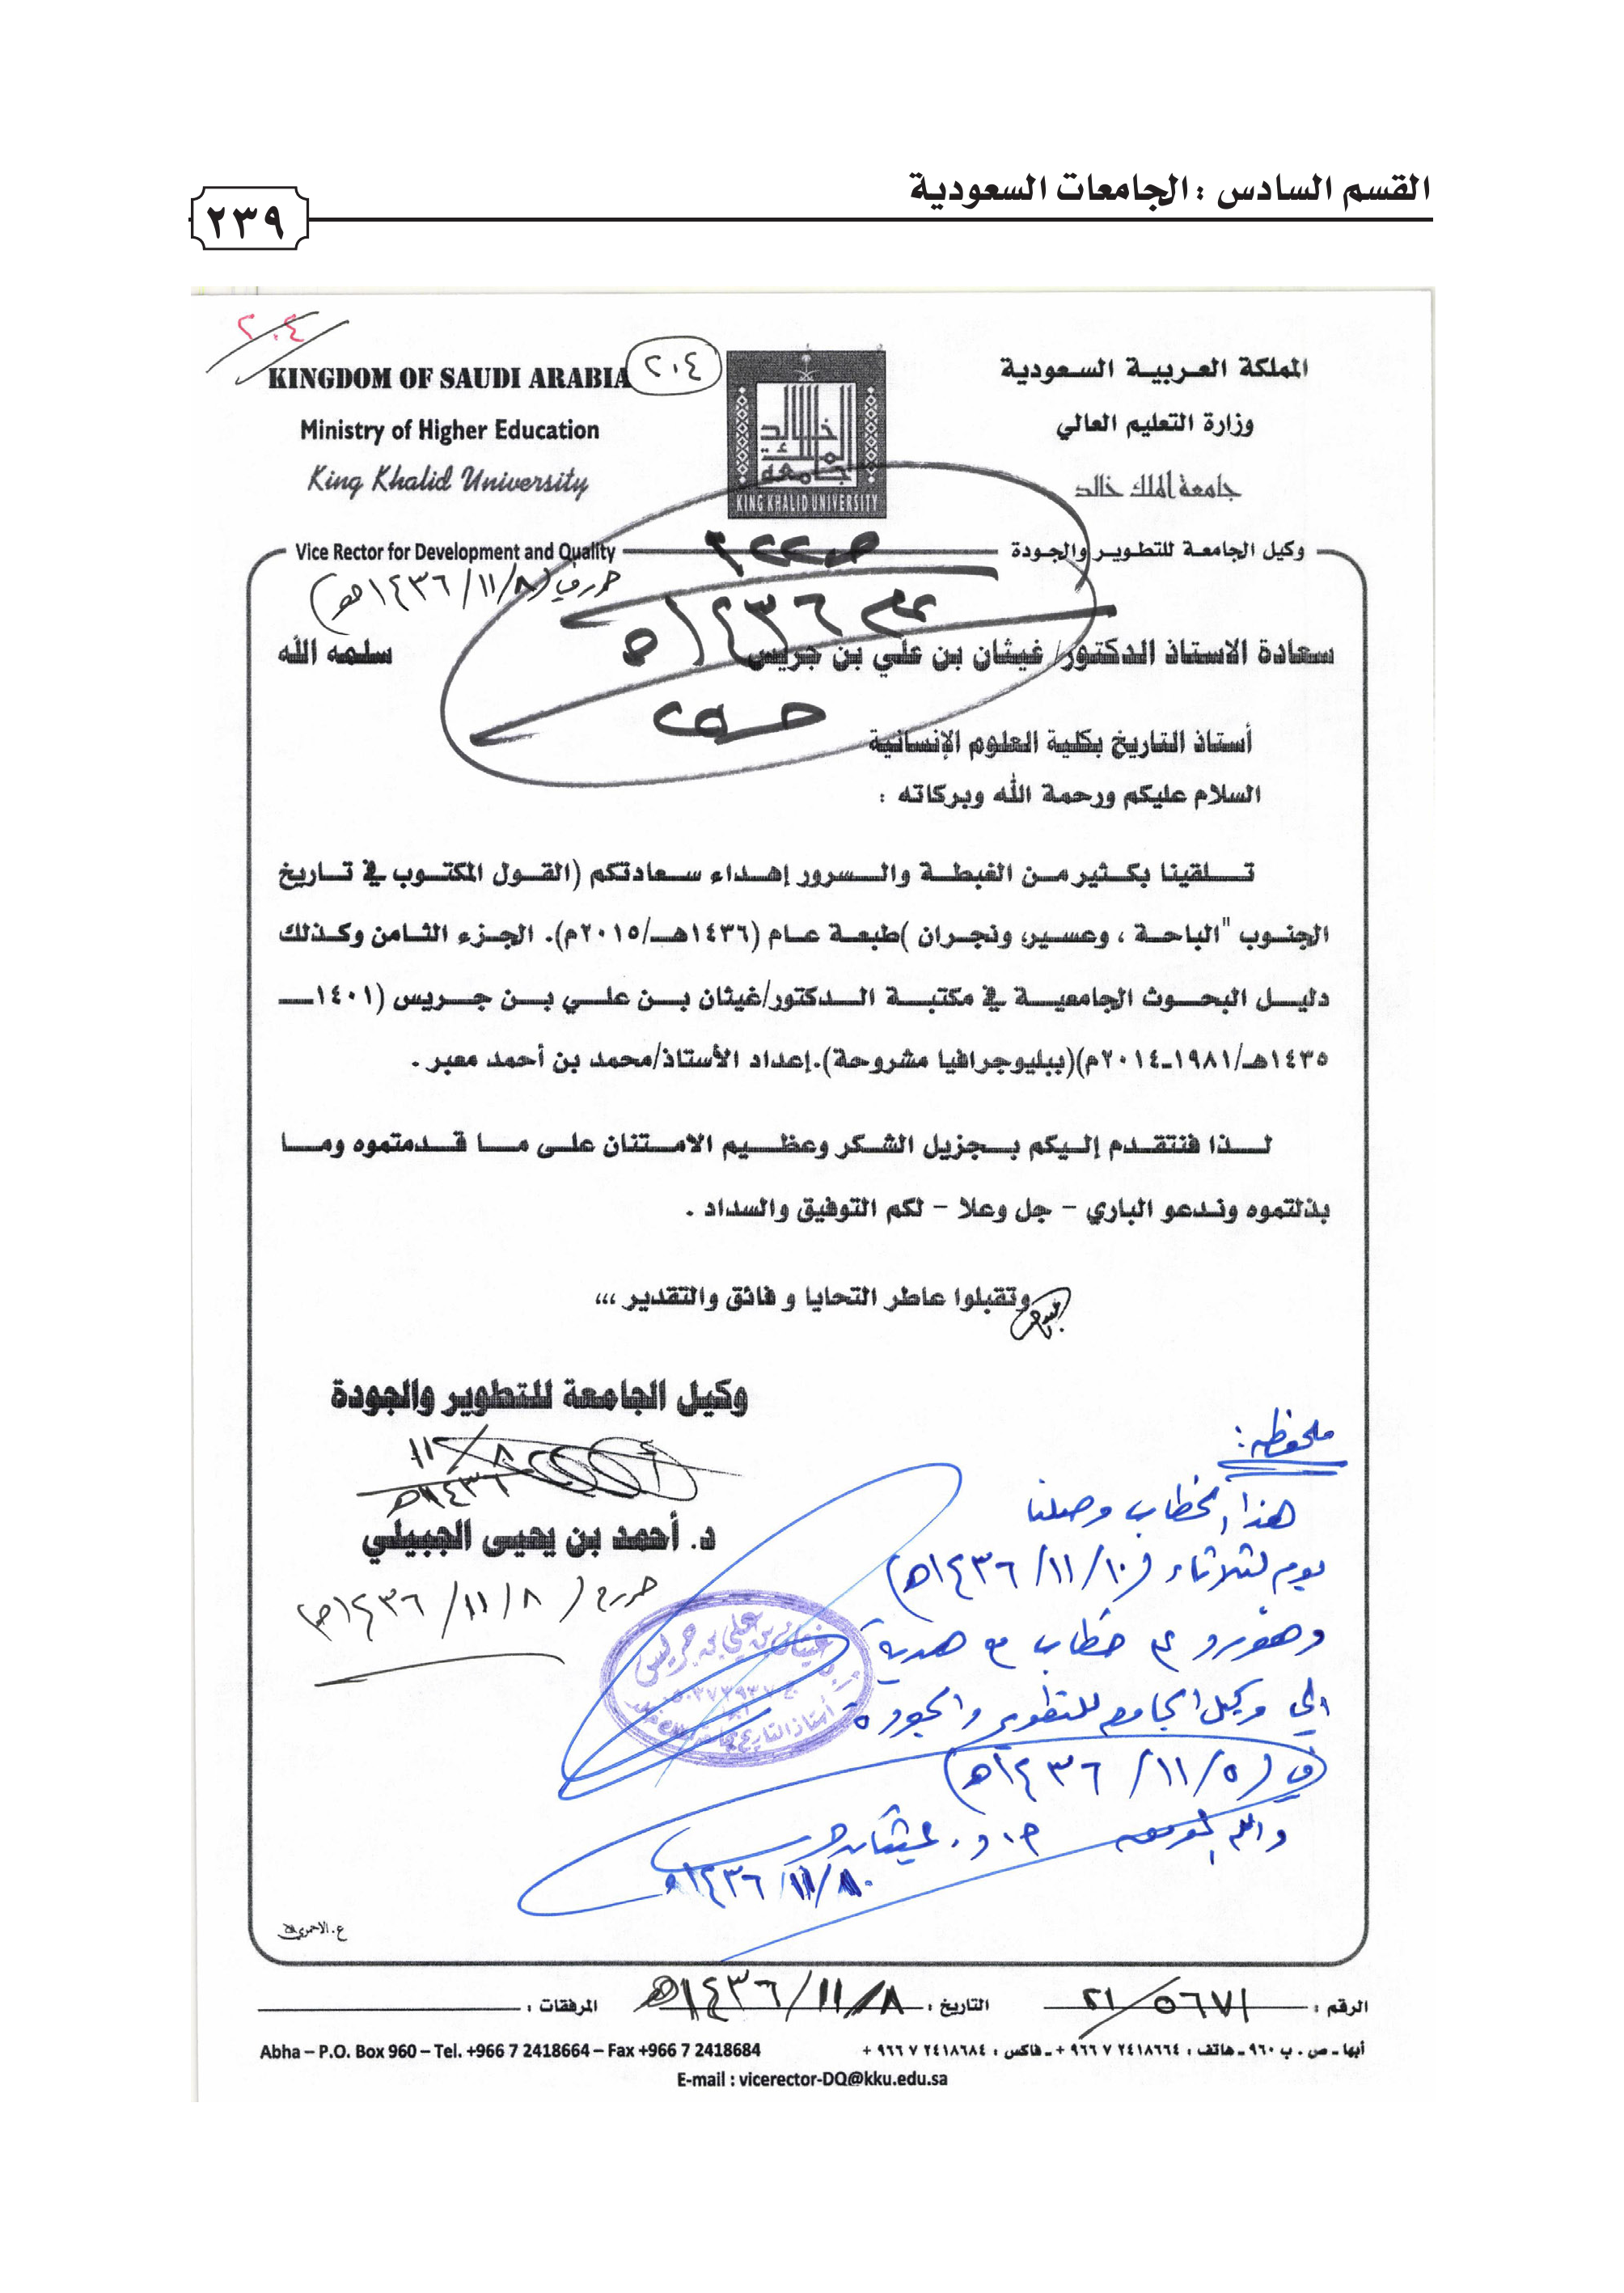 القسم السادس : الجامعات السعودية
٢٣٩
٢٠٤
المملكة العربية السعودية
KINGDOM OF SAUDI ARABIA
٢٠٤
وزارة التعليم العالي
Ministry of Higher Education
جامعة الملك خالد
King Khalid University
جامعة الملك خالد
KING KHALID UNIVERSITY
وكيل الجامعة للتطوير والجودة
Vice Rector for Development and Quality
(٨/١١/١٤٣٦هـ)
١٤٣٦هـ
سعادة الاستاذ الدكتور/ غيثان بن علي بن جريس سلمه الله
أستاذ التاريخ بكلية العلوم الإنسانية
السلام عليكم ورحمة الله وبركاته :
تلقينا بكثير من الغبطة والسرور إهداء سعادتكم (القول المكتوب في تاريخ
الجنوب "الباحة ، وعسير، ونجران )طبعة عام (١٤٣٦هـ/٢٠١٥م). الجزء الثامن وكذلك
دليل البحوث الجامعية في مكتبة الدكتور/غيثان بن علي بن جريس (١٤٠١ـ
١٤٣٥هـ/١٩٨١ـ٢٠١٤م)(ببليوجرافيا مشروحة).إعداد الأستاذ/محمد بن أحمد معبر .
لذا فنتقدم إليكم بجزيل الشكر وعظيم الامتنان على ما قدمتموه وما
بذلتموه وندعو الباري – جل وعلا – لكم التوفيق والسداد .
وتقبلوا عاطر التحايا و فائق والتقدير ,,,
وكيل الجامعة للتطوير والجودة
٨/١١
١٤٣٦هـ
د. أحمد بن يحيى الجبيلي
٨/١١/١٤٣٦هـ)
ملحوظة:
هذا الخطاب وصلنا
يوم الثلاثاء (١٠/١١/١٤٣٦هـ)
وهو رد على خطاب مع هدية
الى وكيل الجامعة للتطوير والجودة
في (٥/١١/١٤٣٦هـ)
والله الموفق أ.د. غيثان جريس
١٠/١١/١٤٣٦هـ
غيثان بن علي بن جريس
أستاذ التاريخ
ع.الاحمري
الرقم : ٢١/٥٦٧١ التاريخ : ٨/١١/١٤٣٦هـ المرفقات :
أبها ـ ص . ب ٩٦٠ ـ هاتف : ٢٤١٨٦٦٤ ٧ ٩٦٦ + ـ فاكس : ٢٤١٨٦٨٤ ٧ ٩٦٦ +
Abha – P.O. Box 960 – Tel. +966 7 2418664 – Fax +966 7 2418684
E-mail : vicerector-DQ@kku.edu.sa